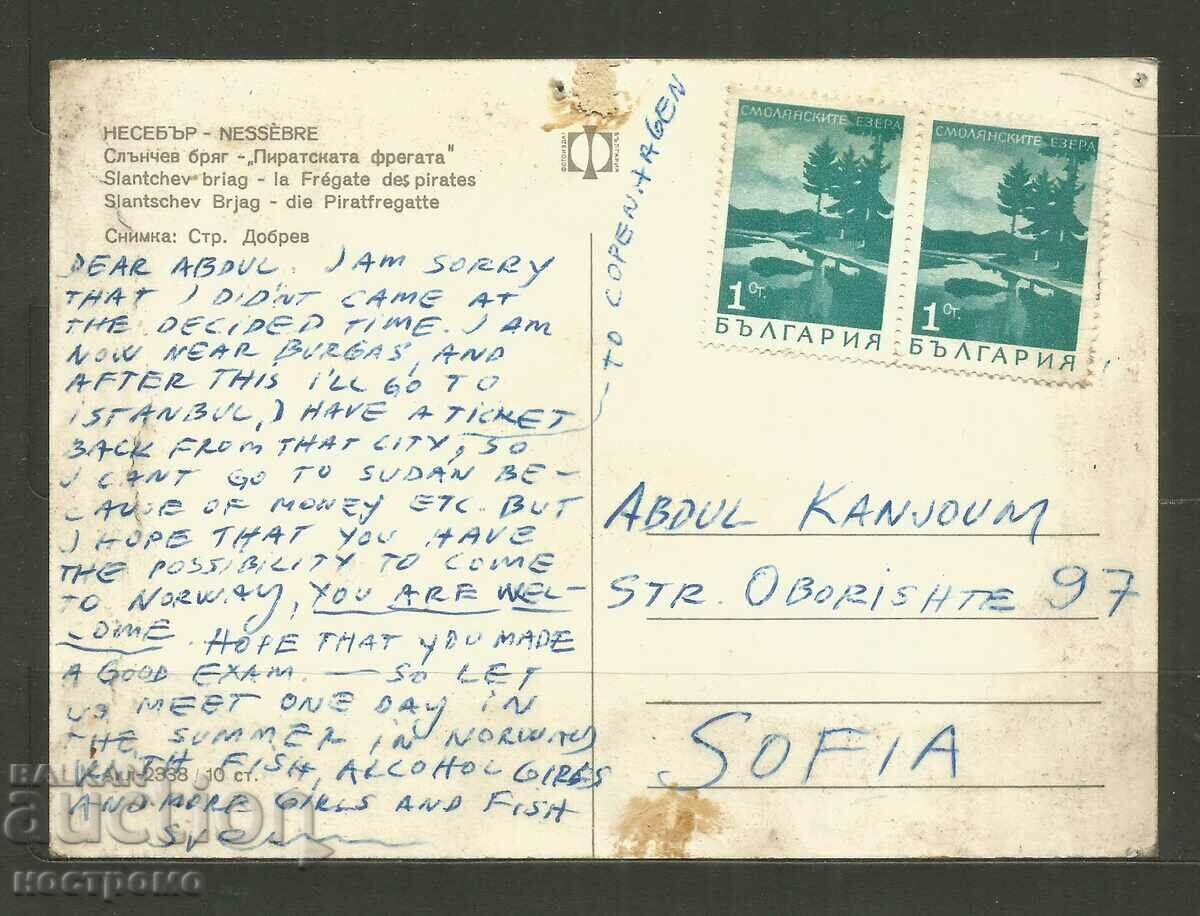 НЕСЕБЪР - NESSÈBRE
Слънчев бряг - „Пиратската фрегата"
Slantchev briag - la Frégate des pirates
Slantschev Brjag - die Piratfregatte
Снимка: Стр. Добрев
DEAR ABDUL. I AM SORRY
THAT I DIDN'T CAME AT
THE DECIDED TIME. I AM
NOW NEAR BURGAS, AND
AFTER THIS I'LL GO TO
ISTANBUL, I HAVE A TICKET
BACK FROM THAT CITY, SO
I CANT GO TO SUDAN BE-
CAUSE OF MONEY ETC. BUT
I HOPE THAT YOU HAVE
THE POSSIBILITY TO COME
TO NORWAY, YOU ARE WEL-
COME. HOPE THAT YOU MADE
A GOOD EXAM. — SO LET
US MEET ONE DAY IN
THE SUMMER IN NORWAY
WITH FISH, ALCOHOL GIRLS
AND MORE GIRLS AND FISH
Акл-2338 / 10 ст.
— TO COPENHAGEN
ФОТОИЗДАТ
БЪЛГАРИЯ
СМОЛЯНСКИТЕ ЕЗЕРА
1 СТ.
БЪЛГАРИЯ
СМОЛЯНСКИТЕ ЕЗЕРА
1 СТ.
БЪЛГАРИЯ
ABDUL KANJOUM
STR. OBORISHTE 97
SOFIA
BALKAN
auction
костромо